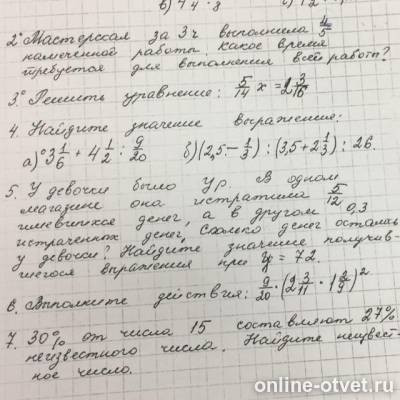 в) 7 4/9 · 8
2° Мастерская за 3 ч выполнила 4/5
намеченной работы. Какое время
требуется для выполнения всей работы?
3.° Решить уравнение: 5/14 x = 2 3/16
4. Найдите значение выражения:
а)° 3 1/6 + 4 1/2 : 9/20 б) (2,5 - 1/3) : (3,5 + 2 1/3) : 26.
5. У девочки было y р. В одном
магазине она истратила 5/12
имевшихся денег, а в другом 0,3
истраченных денег. Сколько денег осталось
у девочки? Найдите значение получив-
шегося выражения при y = 72.
6. Выполните действия: 9/20 · (2 3/11 · 1 2/9)²
7. 30% от числа 15 составляют 27%
неизвестного числа. Найдите неизвест-
ное число.
online-otvet.ru